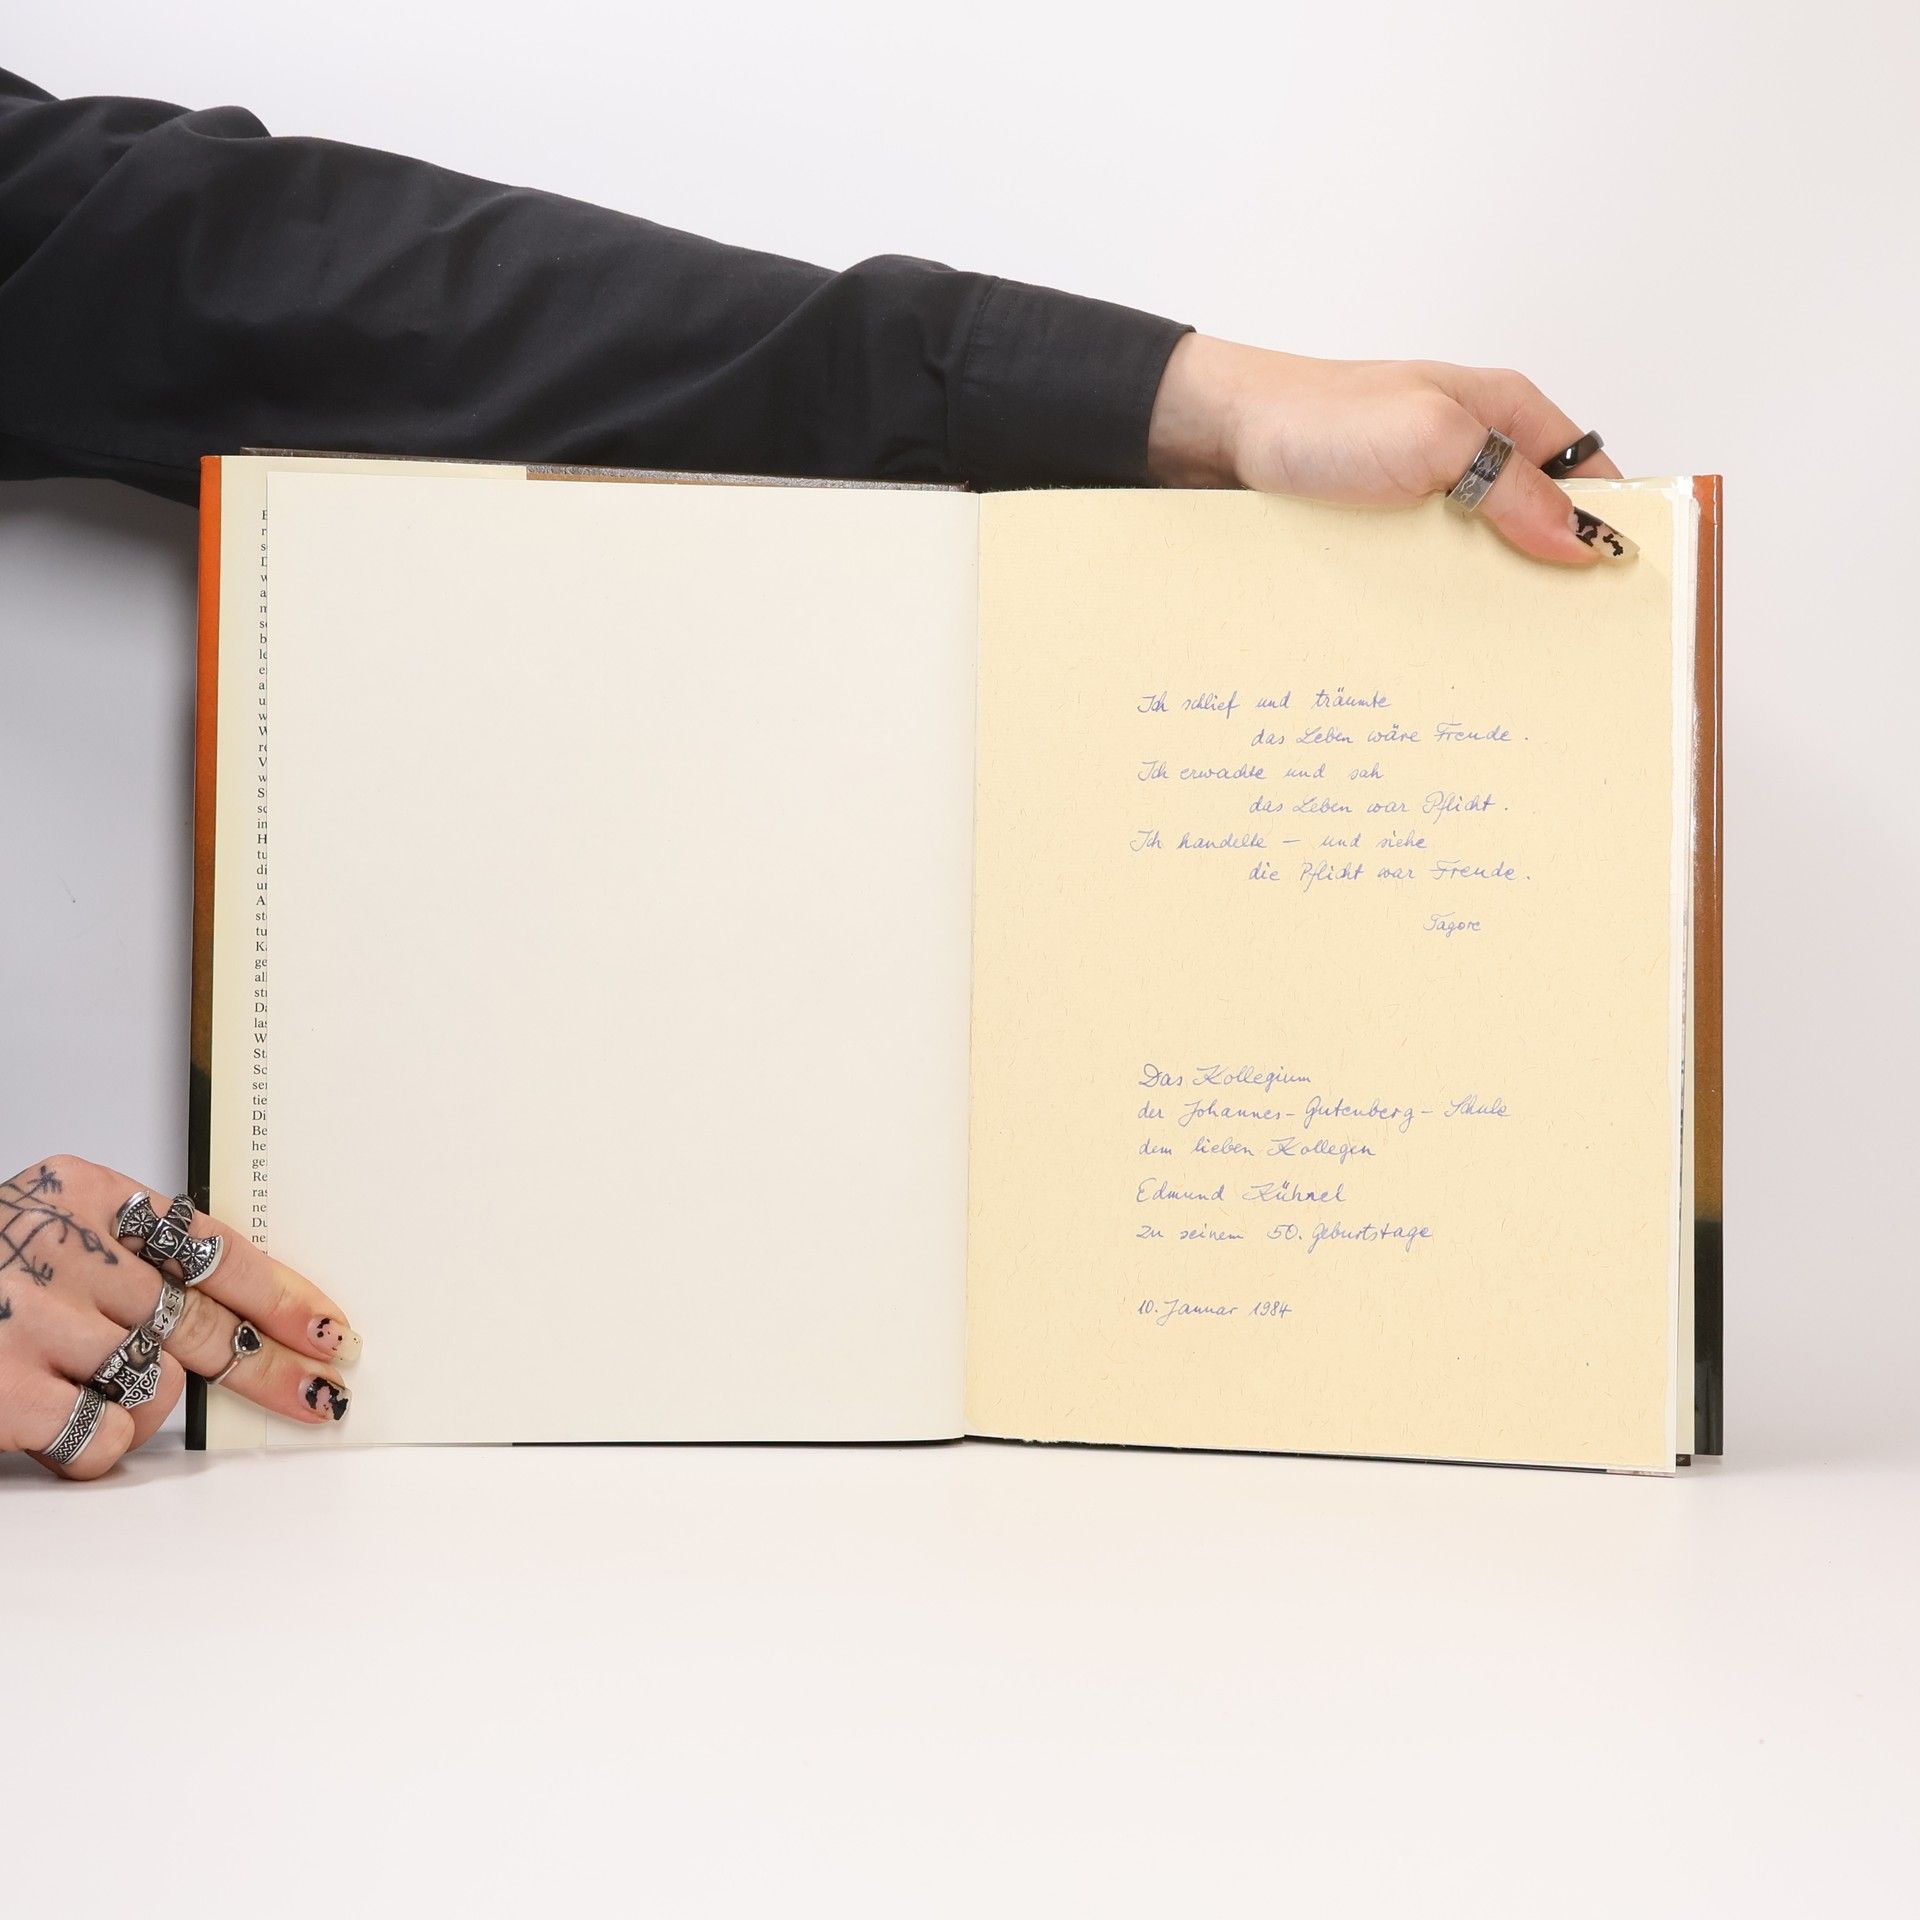 Ich schlief und träumte
das Leben wäre Freude.
Ich erwachte und sah
das Leben war Pflicht.
Ich handelte – und siehe
die Pflicht war Freude.
Tagore
Das Kollegium
der Johannes-Gutenberg-Schule
dem lieben Kollegen
Edmund Kühnel
zu seinem 50. Geburtstage
10. Januar 1984